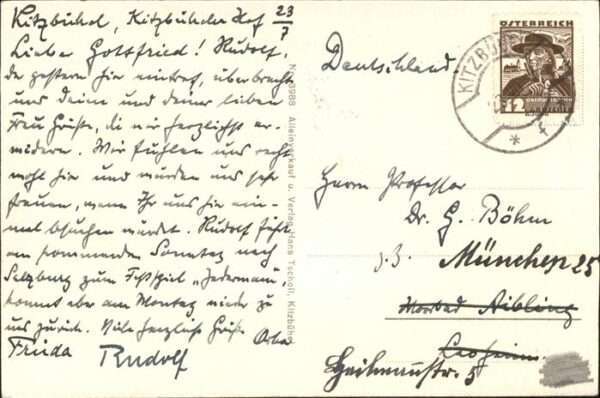 Kitzbühel, Kitzbühler Hof 23/7
Lieber Gottfried! Rudolf,
der gestern hier eintraf, überbrachte
uns Deine und deiner lieben
Frau Grüße, die wir herzlichst er-
widern. Wir fühlen uns recht
wohl hier und würden uns sehr
freuen, wenn Ihr uns hier ein-
mal besuchen würdet. Rudolf fährt
am kommenden Sonntag nach
Salzburg zum Festspiel „Jedermann",
kommt aber am Montag wieder zu
uns zurück. Viele herzliche Grüße
Frieda Rudolf
Alleinverkauf u. Verlag Hans Tscholl, Kitzbühel
Deutschland
ÖSTERREICH
12
KITZBÜ
Herrn Professor
Dr. G. Böhm
z. Z. München 25
Moorbad Aibling